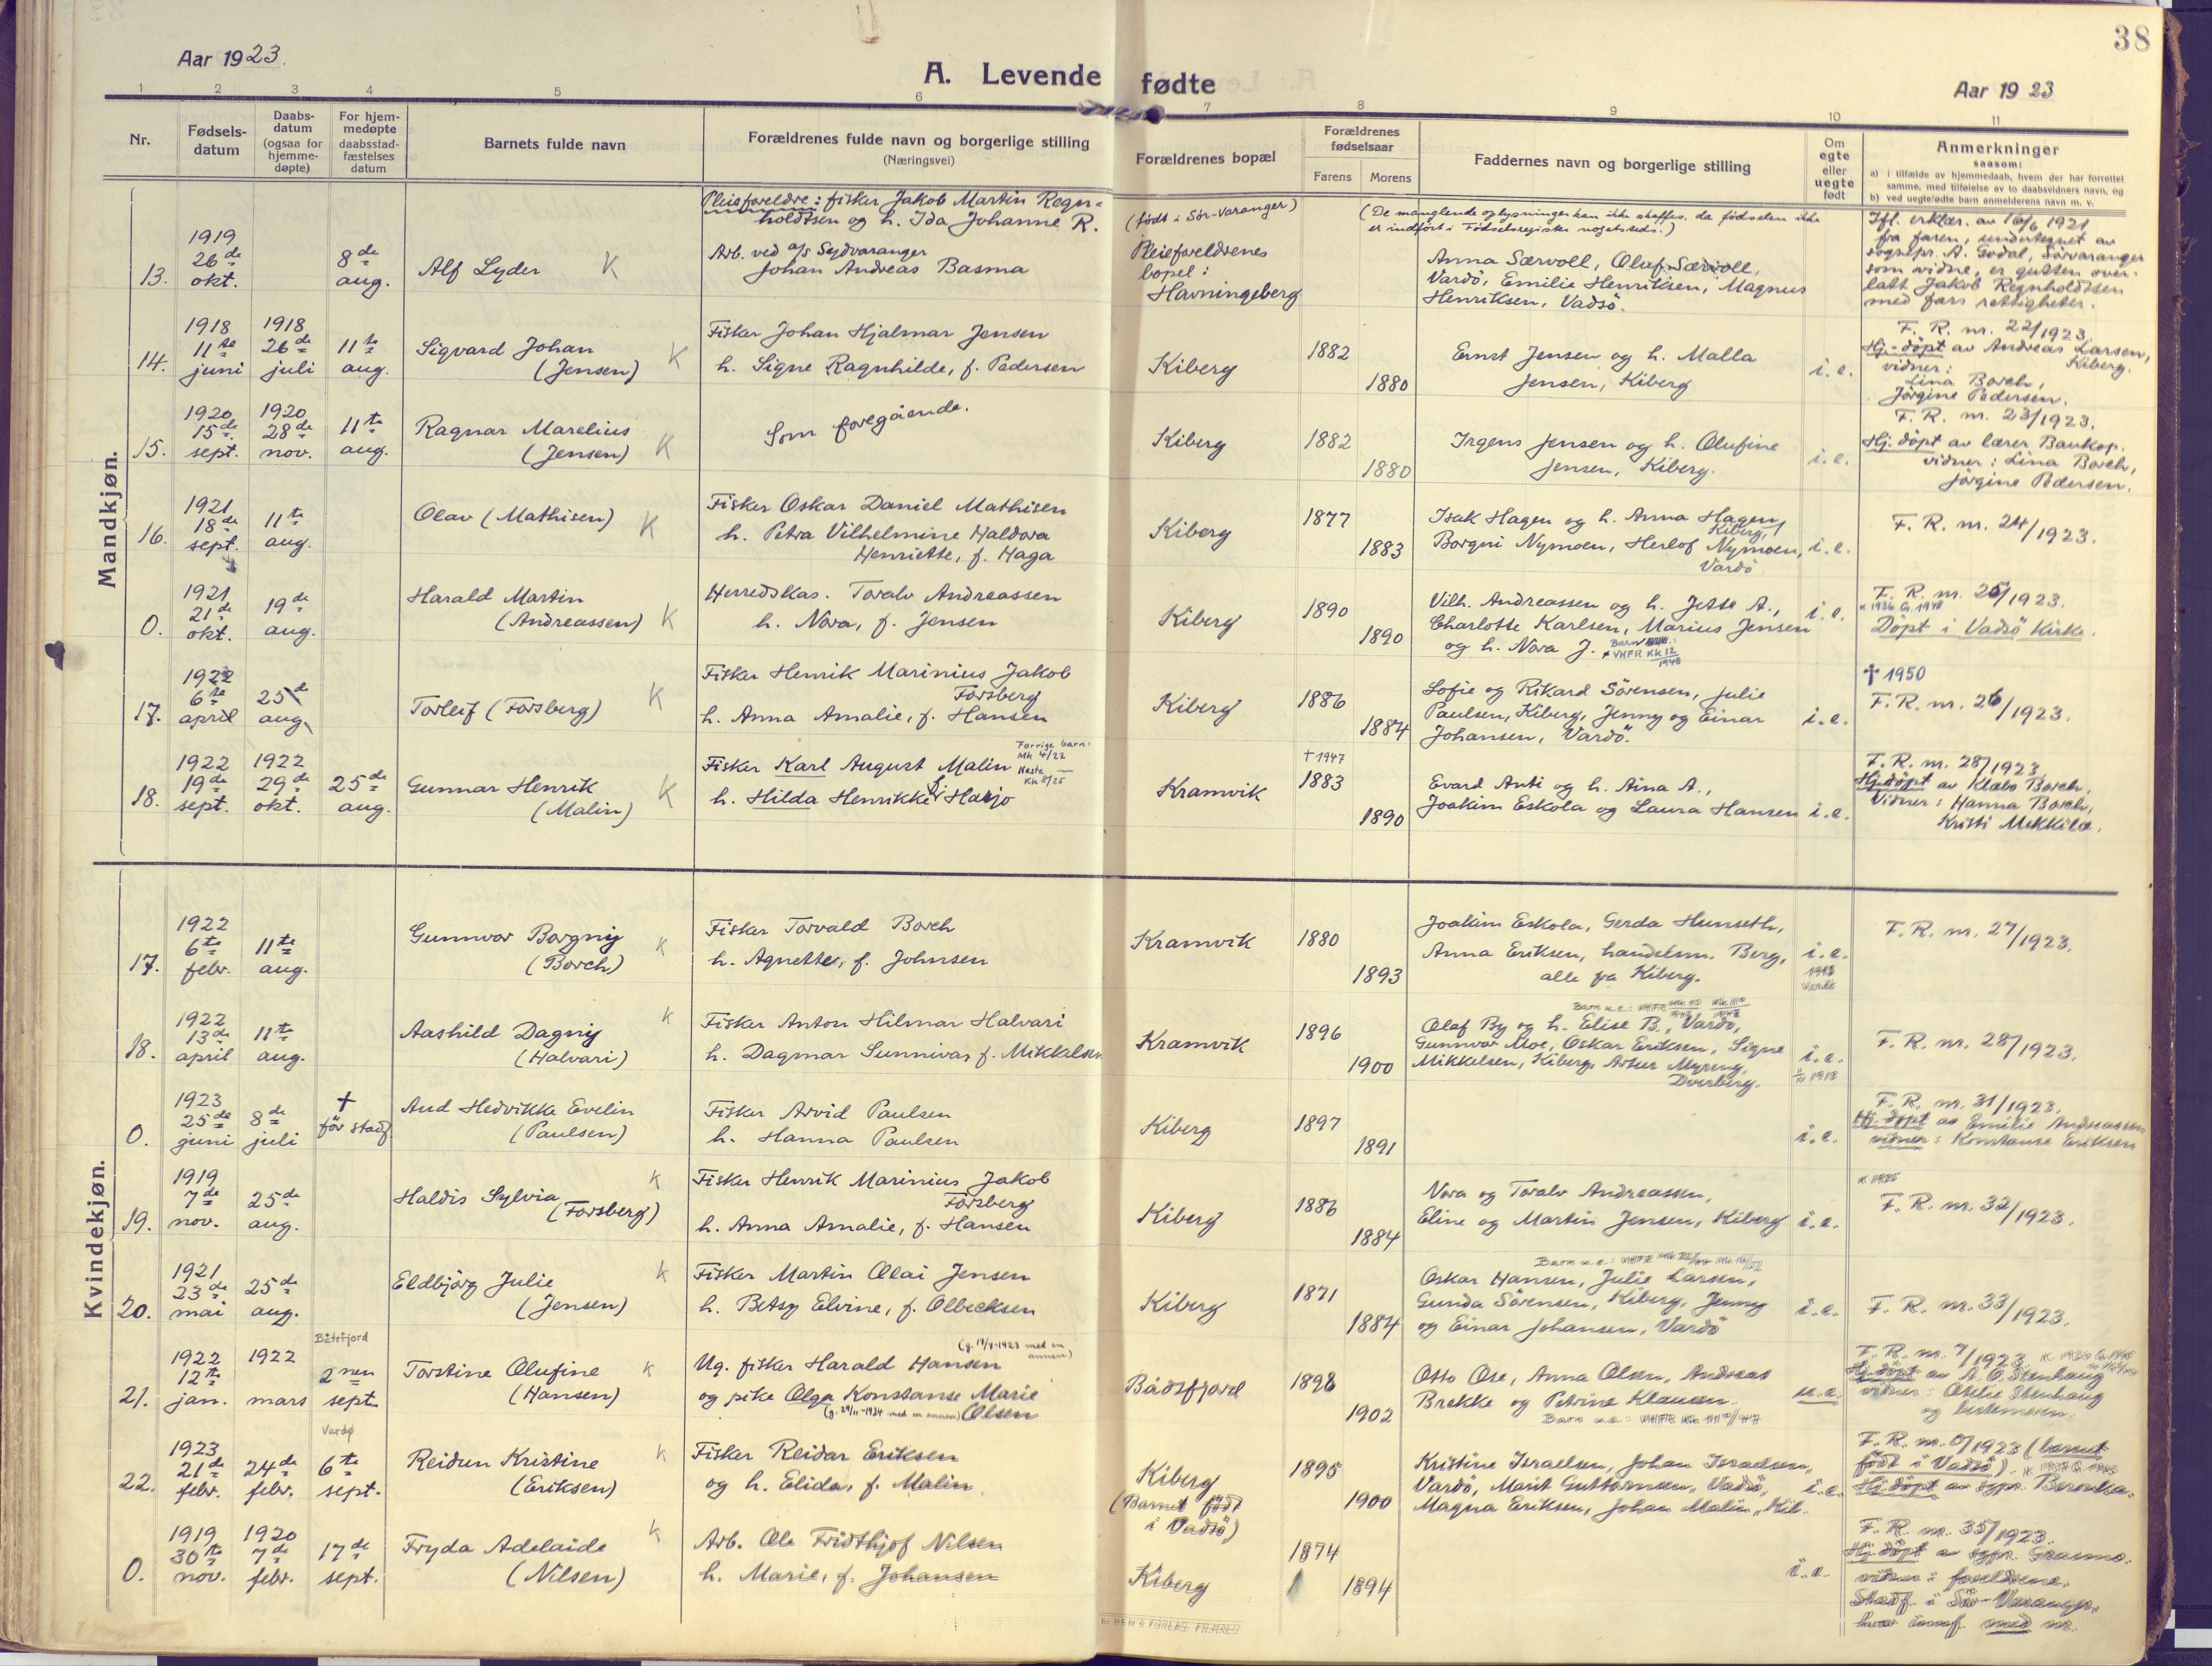 38
Aar 1923.
A. Levende fødte
Aar 1923
1 2 3 4 5 6 7 8 9 10 11
Nr.
Fødsels-
datum
Daabs-
datum
(ogsaa for
hjemme-
døpte)
For hjem-
medøpte
daabsstad-
fæstelses
datum
Barnets fulde navn
Forældrenes fulde navn og borgerlige stilling
(Næringsvei)
Forældrenes bopæl
Forældrenes
fødselsaar
Farens Morens
Faddernes navn og borgerlige stilling
Om
egte
eller
uegte
født
Anmerkninger
saasom:
a) i tilfælde av hjemmedaab, hvem der har forrettet
samme, med tilføielse av to daabsvidners navn, og
b) ved uegtefødte barn anmelderens navn m. v.
Mandkjøn.
13.
1919
26de
okt.
8de
aug.
Alf Lyder K
Pleieforeldre: fisker Jakob Martin Regn-
holdtsen og h. Ida Johanne R.
Arb. ved A/S Sydvaranger
Johan Andreas Basma
(født i Sør-Varanger)
Pleieforeldrenes
bopel:
Havningeberg
(De manglende oplysninger kan ikke skaffes, da fødselen ikke
er indført i Fødselsregistre nogetsteds.)
Anna Særvoll, Oluf Særvoll,
Vardö, Emilie Henriksen, Magnus
Henriksen, Vadsö.
Ifl. erklær. av 16/6 1921
fra faren, undertegnet av
sognepr. A. Godal, Sörvaranger
som vidne, er gutten over-
latt Jakob Regnholdtsen
med fars rettigheter.
14.
1918
11te
juni
1918
26de
juli
11te
aug.
Sigvard Johan
(Jensen) K
Fisker Johan Hjalmar Jensen
h. Signe Ragnhilde, f. Pedersen
Kiberg
1882
1880
Ernst Jensen og h. Malla
Jensen, Kiberg
i.e.
F. R. nr. 22/1923.
Hj.-döpt av Andreas Larsen,
Kiberg.
vidner:
Lina Borch,
Jörgine Pedersen.
15.
1920
15de
sept.
1920
28de
nov.
11te
aug.
Ragnar Marelius
(Jensen) K
Som foregående.
Kiberg
1882
1880
Irgens Jensen og h. Olufine
Jensen, Kiberg.
i.e.
F. R. nr. 23/1923.
Hj. döpt av lærer Baukop.
vidner: Lina Borch,
Jörgine Pedersen.
16.
1921
18de
sept.
11te
aug.
Olav (Mathisen) K
Fisker Oskar Daniel Mathisen
h. Petra Vilhelmine Haldora
Henriette, f. Haga
Kiberg
1877
1883
Isak Hagen og h. Anna Hagen,
Kiberg,
Borgni Nymoen, Herlof Nymoen,
Vardö
i.e.
F. R. nr. 24/1923.
0.
1921
21de
okt.
19de
aug.
Harald Martin
(Andreassen) K
Herredskas. Toralv Andreassen
h. Nora, f. Jensen
Kiberg
1890
1890
Vilh. Andreassen og h. Jette A.,
Charlotte Karlsen, Marius Jensen
og h. Nora J.
VHFR Kk 12
1948
i.e.
F. R. nr. 25/1923.
K 1936 G. 1948
Döpt i Vadsö Kirke.
17.
1922
6te
april
25de
aug.
Torleif (Forsberg) K
Fisker Henrik Marinius Jakob
Forsberg
h. Anna Amalie, f. Hansen
Kiberg
1886
1884
Sofie og Rikard Sörensen, Julie
Paulsen, Kiberg, Jenny og Einar
Johansen, Vardö.
i.e.
† 1950
F. R. nr. 26/1923.
18.
1922
19de
sept.
1922
29de
okt.
25de
aug.
Gunnar Henrik
(Malin) K
Fisker Karl August Malin
h. Hilda Henrikke, f. Harjo
Forrige barn:
Mk 4/22
Neste
Kk 8/25
Kramvik
† 1947
1883
1890
Evard Anti og h. Aina A.,
Joakim Eskola og Laura Hansen
i.e.
F. R. nr. 28/1923
Hj.döpt av Klebo Borch,
Vidner: Hanna Borch,
Kristi Mekkilä.
Kvindekjøn.
17.
1922
6te
febr.
11te
aug.
Gunnvor Borgny
(Borch) K
Fisker Torvald Borch
h. Agnette, f. Johnsen
Kramvik
1880
1893
Joakim Eskola, Gerda Hunseth,
Anna Eriksen, handelsm. Berg,
alle fra Kiberg.
i.e.
F. R. nr. 27/1923.
18.
1922
13de
april
11te
aug.
Aashild Dagny
(Halvari) K
Fisker Anton Hilmar Halvari
h. Dagmar Sunniva, f. Mikkelsen
Kramvik
1896
1900
Olaf By og h. Elise B., Vardö,
Gunnvor Moe, Oskar Eriksen, Signe
Mikkelsen, Kiberg, Artur Myreng,
Dverberg.
i.e.
F. R. nr. 28/1923.
0.
1923
25de
juni
8de
juli
†
för stadf.
Aud Hedvikke Evelin
(Paulsen)
Fisker Arvid Paulsen
h. Hanna Paulsen
Kiberg
1897
1891
i.e.
F. R. nr. 31/1923.
Hj. döpt av Emilie Andreassen
vidner: Konstanse Eriksen
19.
1919
7de
nov.
25de
aug.
Haldis Sylvia
(Forsberg) K
Fisker Henrik Marinius Jakob
Forsberg
h. Anna Amalie, f. Hansen
Kiberg
1886
1884
Nora og Toralv Andreassen,
Eline og Martin Jensen, Kiberg
i.e.
K 1935
F. R. nr. 32/1923.
20.
1921
23de
mai
25de
aug.
Eldbjörg Julie
(Jensen) K
Fisker Martin Olai Jensen
h. Betsy Elvine, f. Olbecksen
Kiberg
1871
1884
Oskar Hansen, Julie Larsen,
Gunda Sörensen, Kiberg, Jenny
og Einar Johansen, Vardö
i.e.
F. R. nr. 33/1923.
21.
1922
12te
jan.
1922
mars
Båtsfjord
2nen
sept.
Torstine Olufine
(Hansen) K
Ug. fisker Harald Hansen
og pike Olga Konstanse Marie
Olsen
Bådsfjord
1898
1902
Otto Ose, Anna Olsen, Andreas
Brekke og Petrine Klausen.
u.e.
F. R. nr. 7/1923
Hj.döpt av A. O. Stenhaug
vidner: Otelie Stenhaug
og bestemoren.
22.
1923
21de
febr.
24de
febr.
Vardø
6te
sept.
Reidun Kristine
(Eriksen) K
Fisker Reidar Eriksen
og h. Elida, f. Malin
Kiberg
(Barnet födt
i Vadsö)
1895
1900
Kristine Israelsen, Johan Israelsen,
Vardö, Marit Guttormsen, Vadsö,
Magna Eriksen, Johan Malin, Kib.
i.e.
F. R. nr. 0/1923 (barnet
födt i Vadsö).
Hj.döpt av sgpr. Beronka.
0.
1919
30te
nov.
1920
7de
febr.
17de
sept.
Fryda Adelaide
(Nilsen) K
Arb. Ole Fridthjof Nilsen
h. Marie, f. Johansen
Kiberg
1874
1894
i.e.
F. R. nr. 35/1923.
Hj. döpt av sgpr. Grasmo.
vidner: foreldrene.
Stadf. i Sör-Varanger,